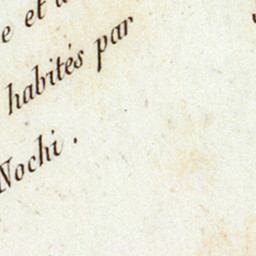 e et
habités par
Nochi.